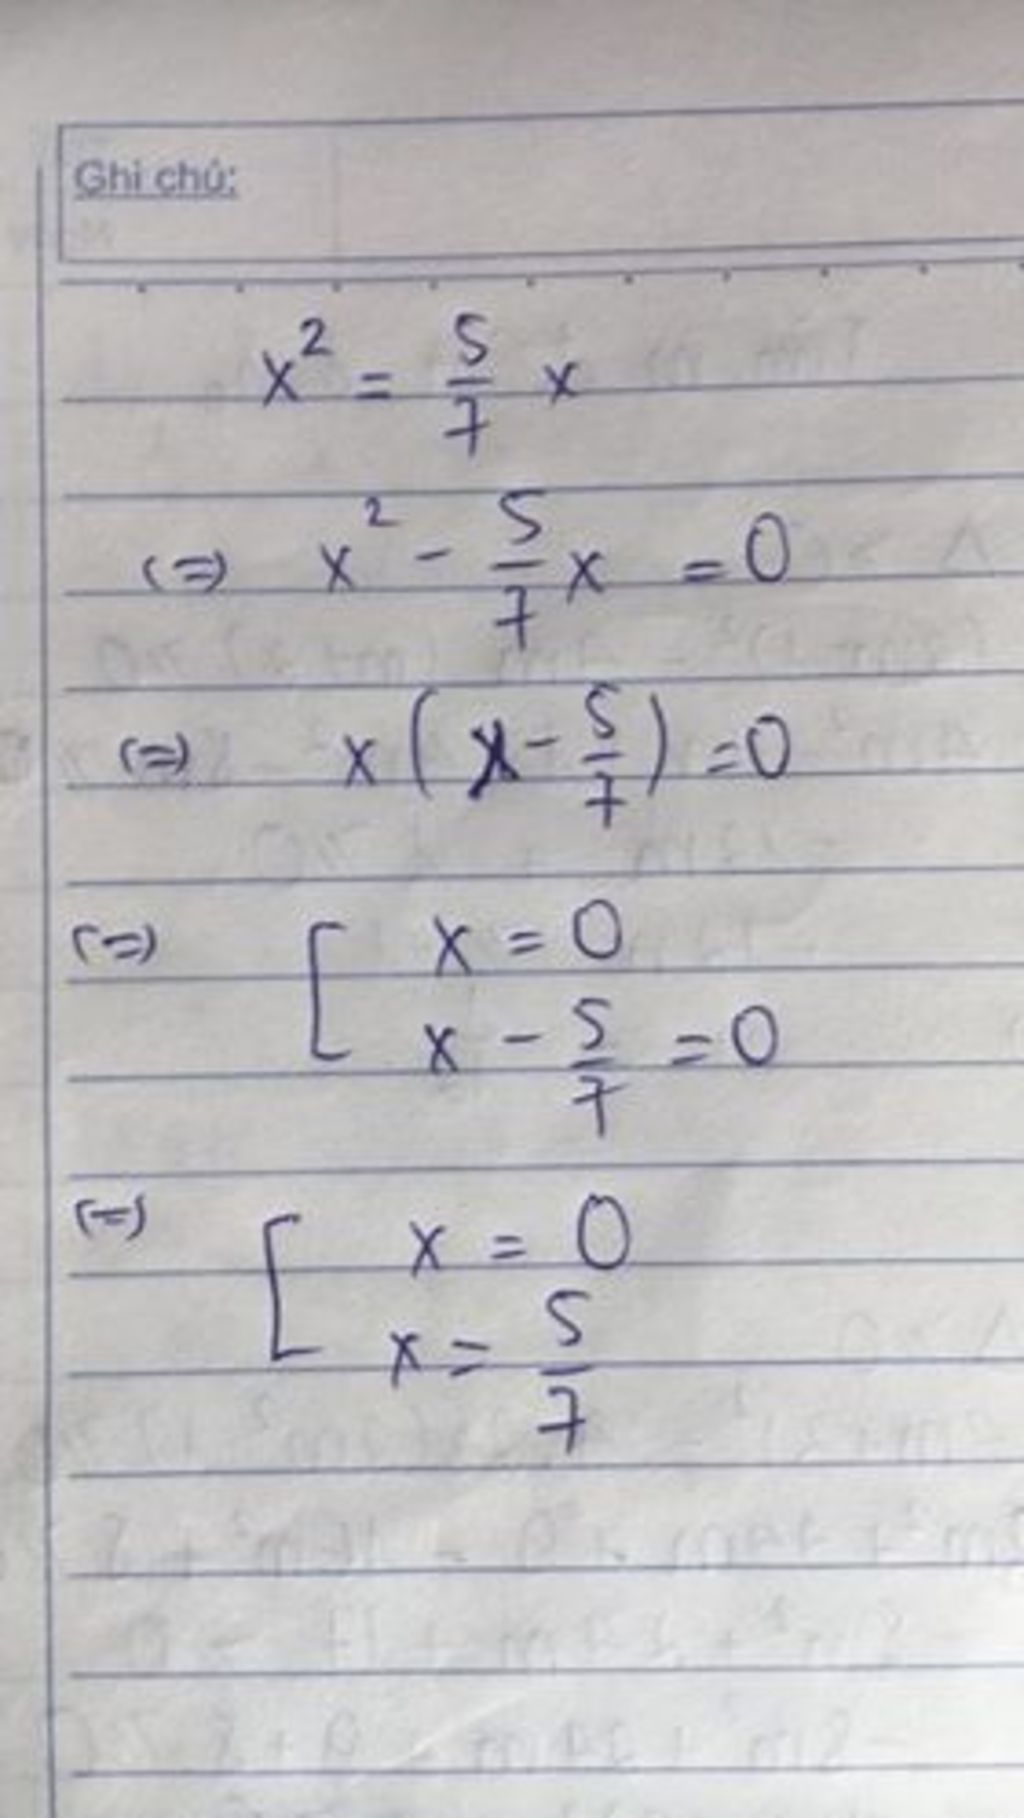 Ghi chú:
x² = 5/7 x
(=) x² - 5/7 x = 0
(=) x ( x - 5/7 ) = 0
(=) [ x = 0
x - 5/7 = 0
(=) [ x = 0
x = 5/7